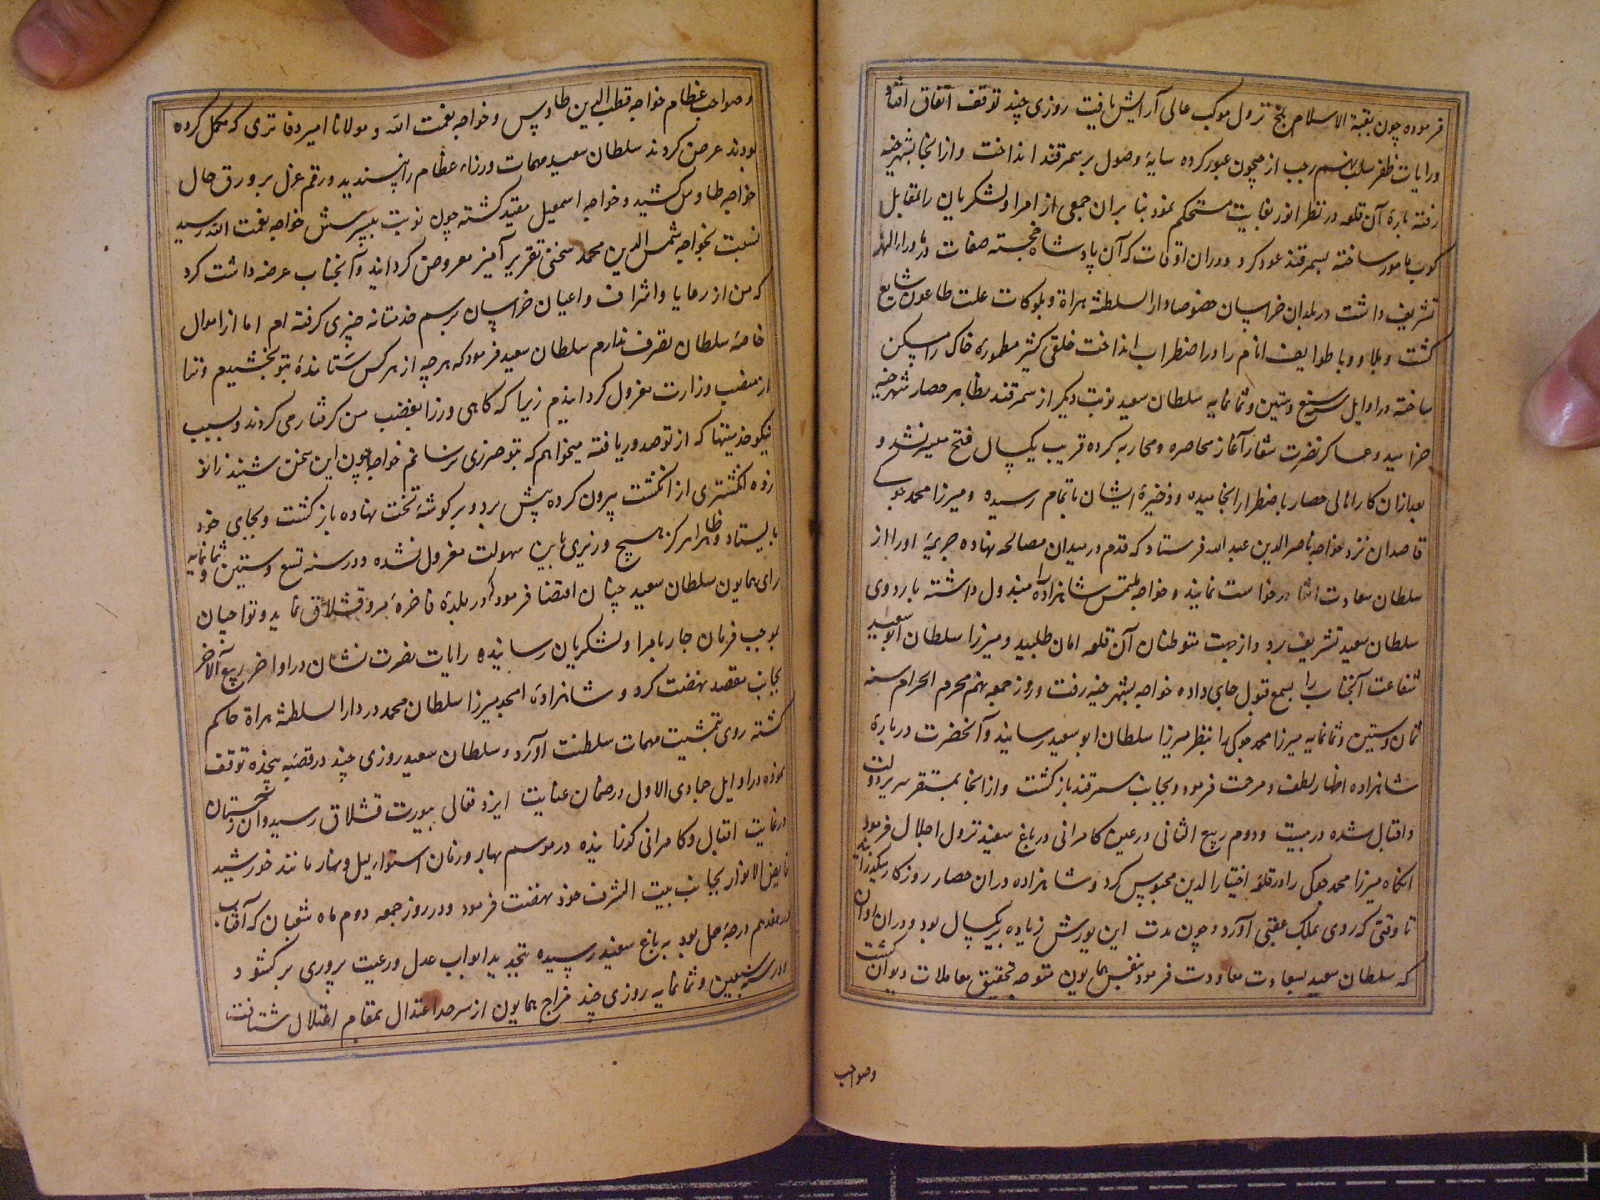 فرموده چون بقبة الاسلام بلخ نزول موکب عالی آرایش یافت روزی چند توقف اتفاق افتاد
ورایات ظفر سلب رجب از جیحون عبور کرده سایهٔ وصول بر سمرقند انداخت وازانجا بشهرخیه
رفته بارهٔ آن قلعه در نظر انور بغایت مستحکم نمود بنابران جمعی از امرا ولشکریان را بمقابل
کوب مامور ساخته بسمرقند عود کرد ودران اوقات که آن پادشاه خجسته صفات در ماوراءالنهر
تشریف داشت در بلدان خراسان خصوصا دار السلطنة هراة وبلوکات علت طاعون شایع
گشت وبلا ووبا طوایف انام را در اضطراب انداخت خلقی کثیر مطمورهٔ خاک را مسکن
ساخته در اوایل سنه سبع وستین وثمانمایه سلطان سعید نوبت دیگر از سمرقند بظاهر حصار شهرخیه
خرامید وعساکر نصرت شعار آغاز محاصره ومحاربه کرده قریب یکسال فتح میسر نشد و
بعدازان کار اهالی حصار باضطرار انجامیده وذخیرهٔ ایشان باتمام رسیده ومیرزا محمد جوکی
قاصدان نزد خواجه ناصر الدین عبد الله فرستاد که قدم در میدان مصالحه نهاده جریمهٔ او را از
سلطان سعادت انتما درخواست نمایند وخواجه ملتمس شاهزاده را مبذول داشته باردوی
سلطان سعید تشریف برد واز جهت متوطنان آن قلعه امان طلبید ومیرزا سلطان ابو سعید
شفاعت آنجناب را بسمع قبول جای داده خواجه بشهرخیه رفت وروز جمعه نهم محرم الحرام سنه
ثمان وستین وثمانمایه میرزا محمد جوکی را بنظر میرزا سلطان ابو سعید رسانید وآنحضرت دربارهٔ
شاهزاده اظهار لطف ومرحمت فرمود وبجانب سمرقند بازگشت وازانجا بمستقر سریر دولت
واقبال شده در بیست ودوم ربیع الثانی در عین کامرانی در باغ سفید نزول اجلال فرمود
انگاه میرزا محمد جوکی را در قلعهٔ اختیار الدین محبوس کرد وشاهزاده دران حصار روزکار میگذرانید
تا وقتی که روی بملک عقبی آورد وچون مدت این یورش زیاده بر یکسال بود ودران اوان
که سلطان سعید بسعادت معاودت فرمود بنفس همایون متوجه تحقیق معاملات دیوان گشت
وصواحب
وصواحب عظام خواجه قطب الدین طاوس وخواجه نعمت الله ومولانا امیر وفا تری که مکمل کرده
بودند عرض کردند سلطان سعید مهمات وزراء عظام را نپسندید ورقم عزل بر ورق حال
خواجه طاوس کشید وخواجه اسمعیل مقید گشته چون نوبت پرسش خواجه نعمت الله رسید
نسبت بخواجه شمس الدین محمد سخنی تقریر آمیز معروض گردانید وآنجناب عرضه داشت کرد
که من از رعایا واشراف واعیان خراسان برسم خدمتانه چیزی گرفته ام اما از اموال
خاصهٔ سلطان تصرف ندارم سلطان سعید فرمود که هرچه از هر کس ستانده بتو بخشیدیم وترا
از منصب وزارت معزول گردانیدیم زیرا که گاهی وزرا بغضب من گرفتار می گردند وبسبب
نیکو خدمتیها که از تو صدور یافته میخواهم که بتو ضرری نرسانم خواجه چون این سخن شنید زانو
زده انگشتری از انگشت بیرون کرده پیش برد وبر گوشهٔ تخت نهاده بازگشت وبجای خود
بایستاد وظاهرا هرگز هیچ وزیری باین سهولت معزول نشده ودر سنه تسع وستین وثمانمایه
رای همایون سلطان سعید چنان اقتضا فرمود که در بلدهٔ فاخرهٔ مرو قشلاق نماید وتواجیان
بموجب فرمان جار بامرا ولشکریان رسانیده رایات نصرت نشان در اواخر ربیع الآخر
بجانب مقصد نهضت کرد وشاهزادهٔ امجد میرزا سلطان محمد در دار السلطنة هراة حاکم
گشته روی بتمشیت مهمات سلطنت آورد وسلطان سعید روزی چند در قصبه پنجده توقف
نموده در اوایل جمادی الاول در ضمان عنایت ایزد تعالی بیورت قشلاق رسید وآن زمستان
در غایت اقبال وکامرانی گذرانیده در موسم بهار وزمان استواء لیل ونهار مانند خورشید
فایض الانوار بجانب بیت الشرف خود نهضت فرمود ودر روز جمعه دوم ماه شعبان که آفتاب
در هفدهم درجهٔ حمل بود به باغ سفید رسیده بتجدید ابواب عدل ورعیت پروری برگشود و
در سنه سبعین وثمانمایه روزی چند مزاج همایون از سرحد اعتدال بمقام اعتلال شتافت